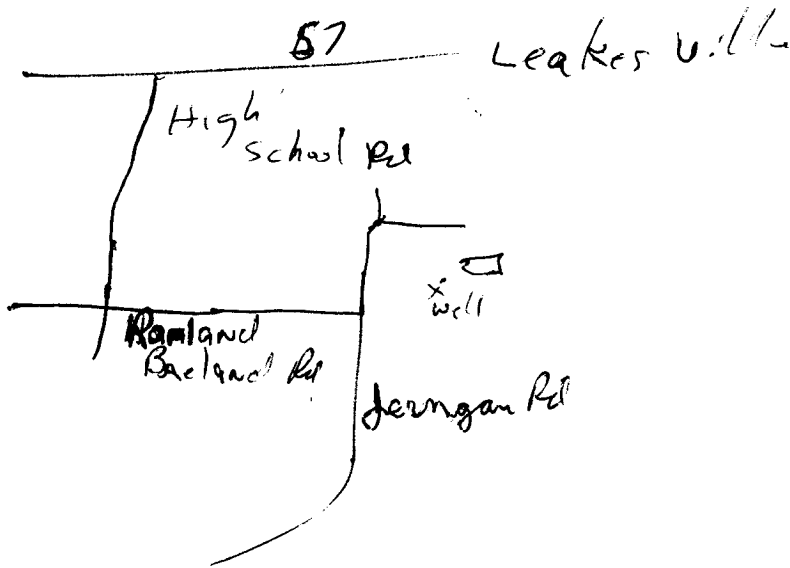 57
Leakesville
High
School Rd
x
well
Ramland
Bacland Rd
Jerngan Rd